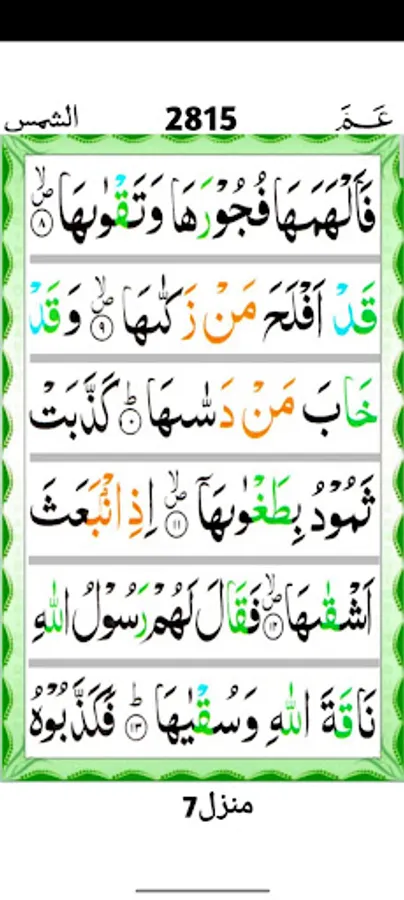 الشمس 2815 عَمَّ
فَاَلْهَمَهَا فُجُوْرَهَا وَتَقْوٰىهَا ۪ۙ ۸
قَدْ اَفْلَحَ مَنْ زَكّٰىهَا ۪ۙ ۹ وَقَدْ
خَابَ مَنْ دَسّٰىهَا ؕ ۱۰ كَذَّبَتْ
ثَمُوْدُ بِطَغْوٰىهَاۤ ۪ۙ ۱۱ اِذِ انْۢبَعَثَ
اَشْقٰىهَا ۪ۙ ۱۲ فَقَالَ لَهُمْ رَسُوْلُ اللّٰهِ
نَاقَةَ اللّٰهِ وَسُقْيٰهَا ؕ ۱۳ فَكَذَّبُوْهُ
منزل7